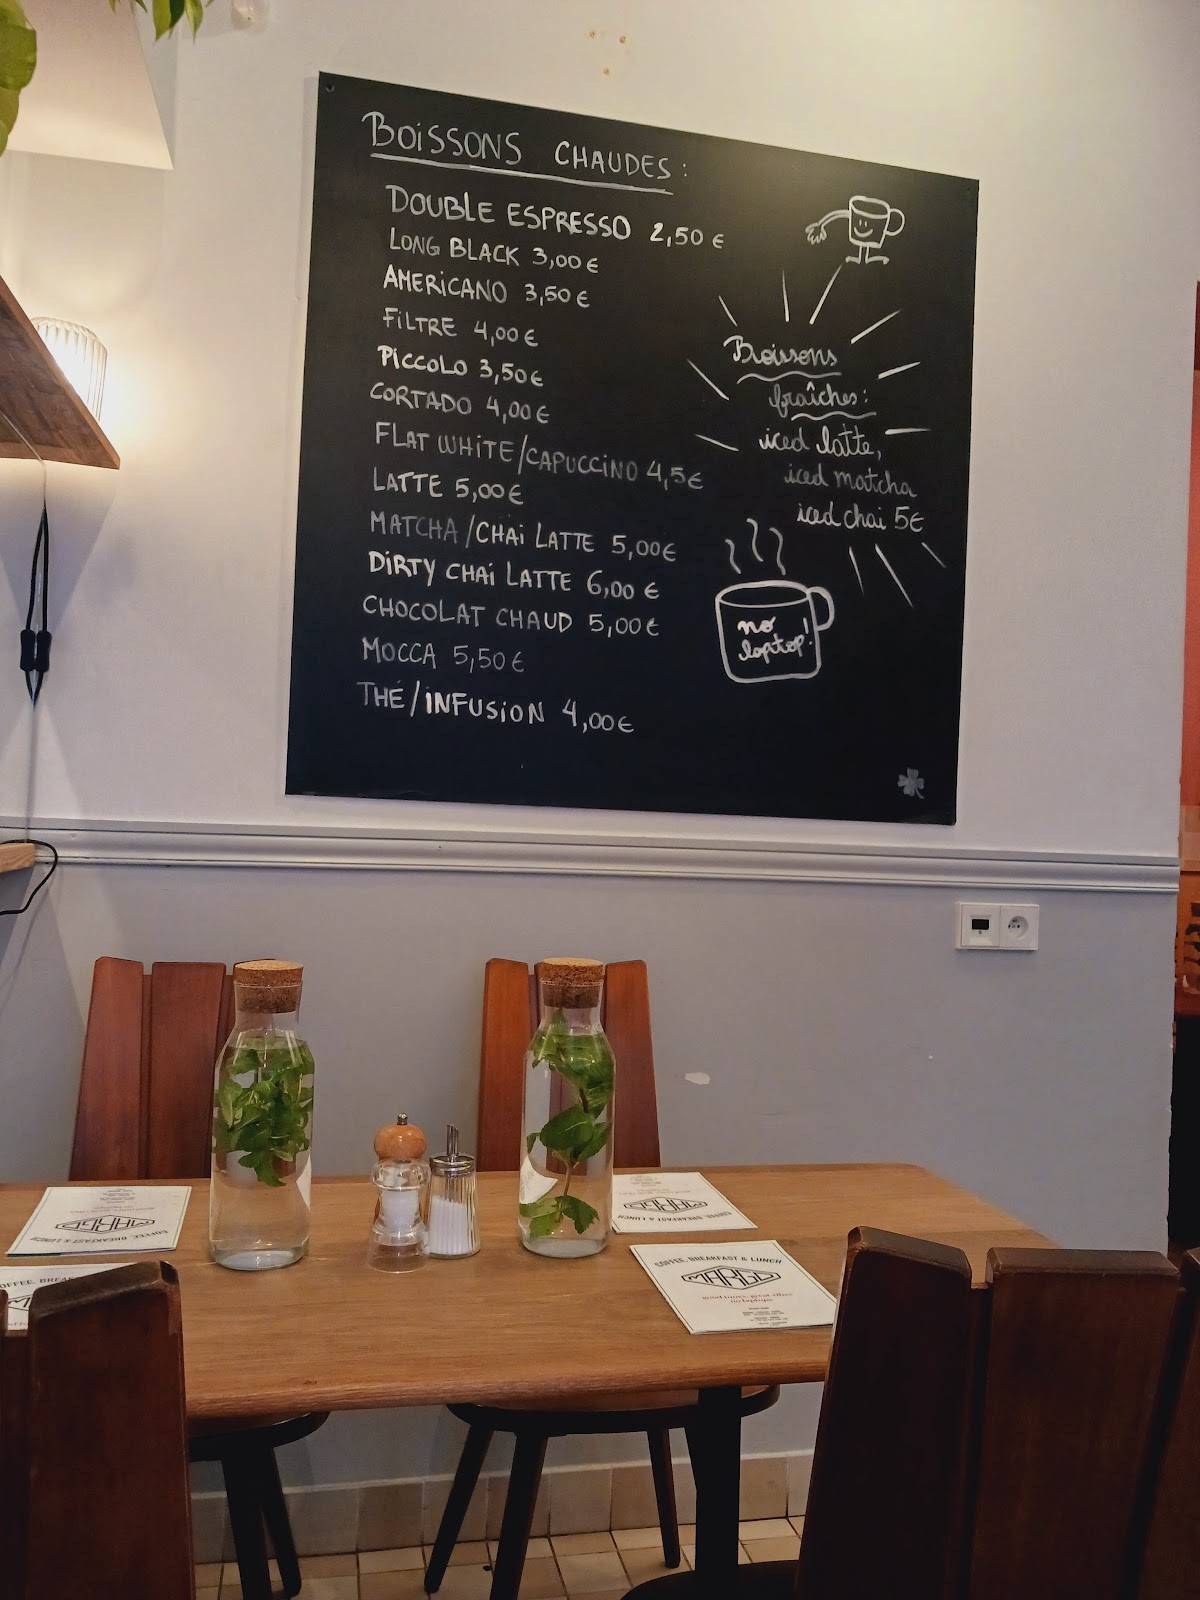 BOISSONS CHAUDES:
DOUBLE ESPRESSO 2,50 €
LONG BLACK 3,00 €
AMERICANO 3,50 €
FILTRE 4,00 €
PICCOLO 3,50 €
CORTADO 4,00 €
FLAT WHITE/CAPUCCINO 4,5 €
LATTE 5,00 €
MATCHA/CHAI LATTE 5,00 €
DIRTY CHAI LATTE 6,00 €
CHOCOLAT CHAUD 5,00 €
MOCCA 5,50 €
THÉ/INFUSION 4,00 €
Boissons
fraîches:
iced latte,
iced matcha
iced chai 5€
no
laptop!
COFFEE, BREAKFAST & LUNCH
COFFEE, BREAKFAST & LUNCH
COFFEE, BREAKFAST & LUNCH